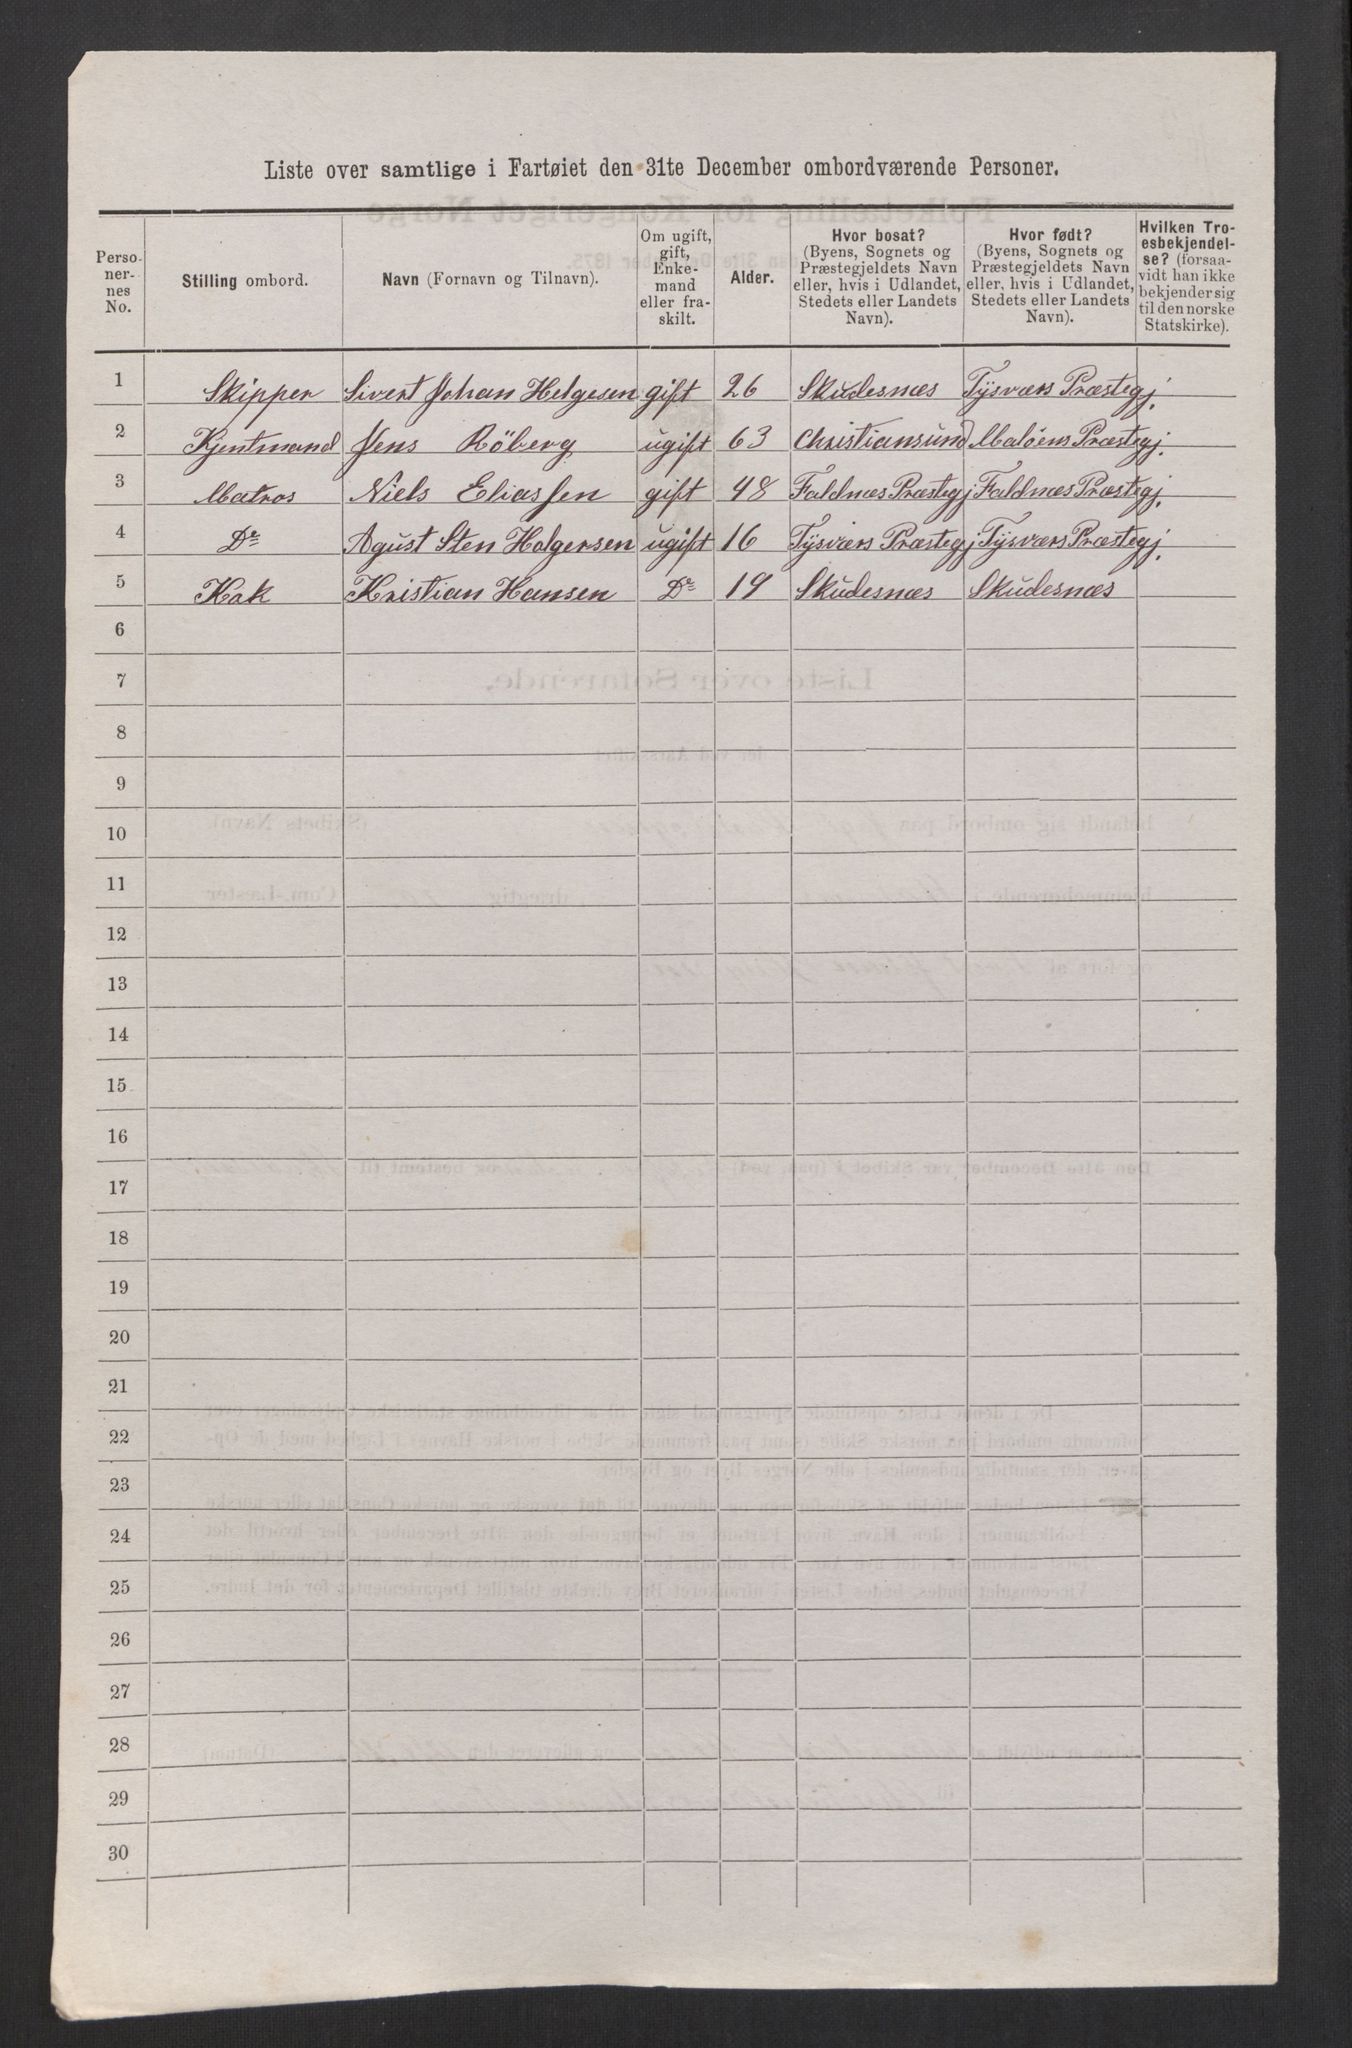 Liste over samtlige i Fartøiet den 31te December ombordværende Personer.
Perso-
nernes
No.
Stilling ombord.
Navn (Fornavn og Tilnavn).
Om ugift,
gift,
Enke-
mand
eller fra-
skilt.
Alder.
Hvor bosat?
(Byens, Sognets og
Præstegjeldets Navn
eller, hvis i Udlandet,
Stedets eller Landets
Navn).
Hvor født?
(Byens, Sognets og
Præstegjeldets Navn
eller, hvis i Udlandet,
Stedets eller Landets
Navn).
Hvilken Tro-
esbekjendel-
se? (forsaa-
vidt han ikke
bekjender sig
til den norske
Statskirke).
1 Skipper Sivert Johan Helgesen gift 26 Skudesnæs Tysværs Præstegj.
2 Kjentmand Jens Röberg ugift 63 Christiansund Maløens Præstegj.
3 Matros Niels Eliassen gift 48 Faldnæs Præstegj Faldnæs Præstegj.
4 Do Agust Sten Holgersen ugift 16 Tysværs Præstegj Tysværs Præstegj.
5 Kok Kristian Hansen Do 19 Skudesnæs Skudesnæs
6
7
8
9
10
11
12
13
14
15
16
17
18
19
20
21
22
23
24
25
26
27
28
29
30